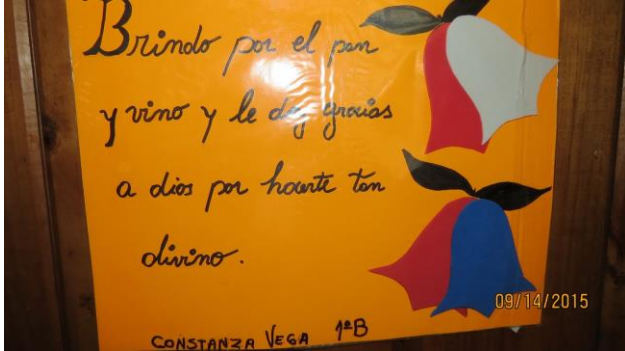 Brindo por el pan
y vino y le doy gracias
a dios por haerte tan
divino.
CONSTANZA VEGA 1ºB
09/14/2015